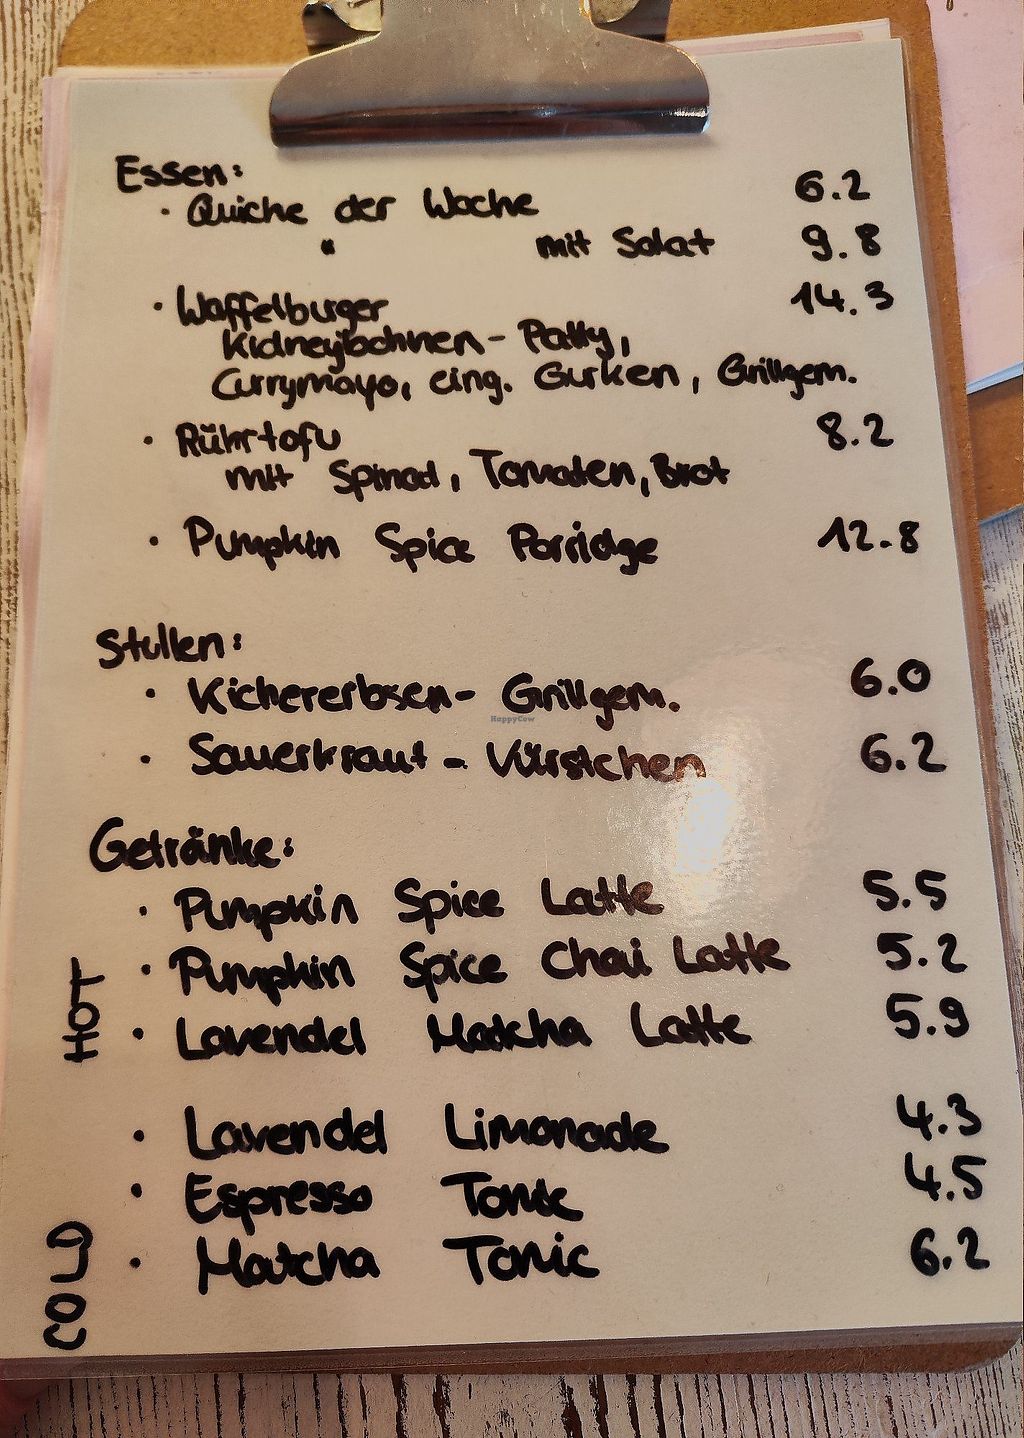 Essen:
· Quiche der Woche 6.2
" mit Salat 9.8
· Waffelburger 14.3
Kidneybohnen- Patty,
Currymayo, eing. Gurken, Grillgem.
· Rührtofu 8.2
mit Spinat, Tomaten, Brot
· Pumpkin Spice Porridge 12.8
Stullen:
· Kichererbsen- Grillgem. 6.0
HappyCow
· Sauerkraut - Würstchen 6.2
Getränke:
HOT
· Pumpkin Spice Latte 5.5
· Pumpkin Spice Chai Latte 5.2
· Lavendel Matcha Latte 5.9
COLD
· Lavendel Limonade 4.3
· Espresso Tonic 4.5
· Matcha Tonic 6.2